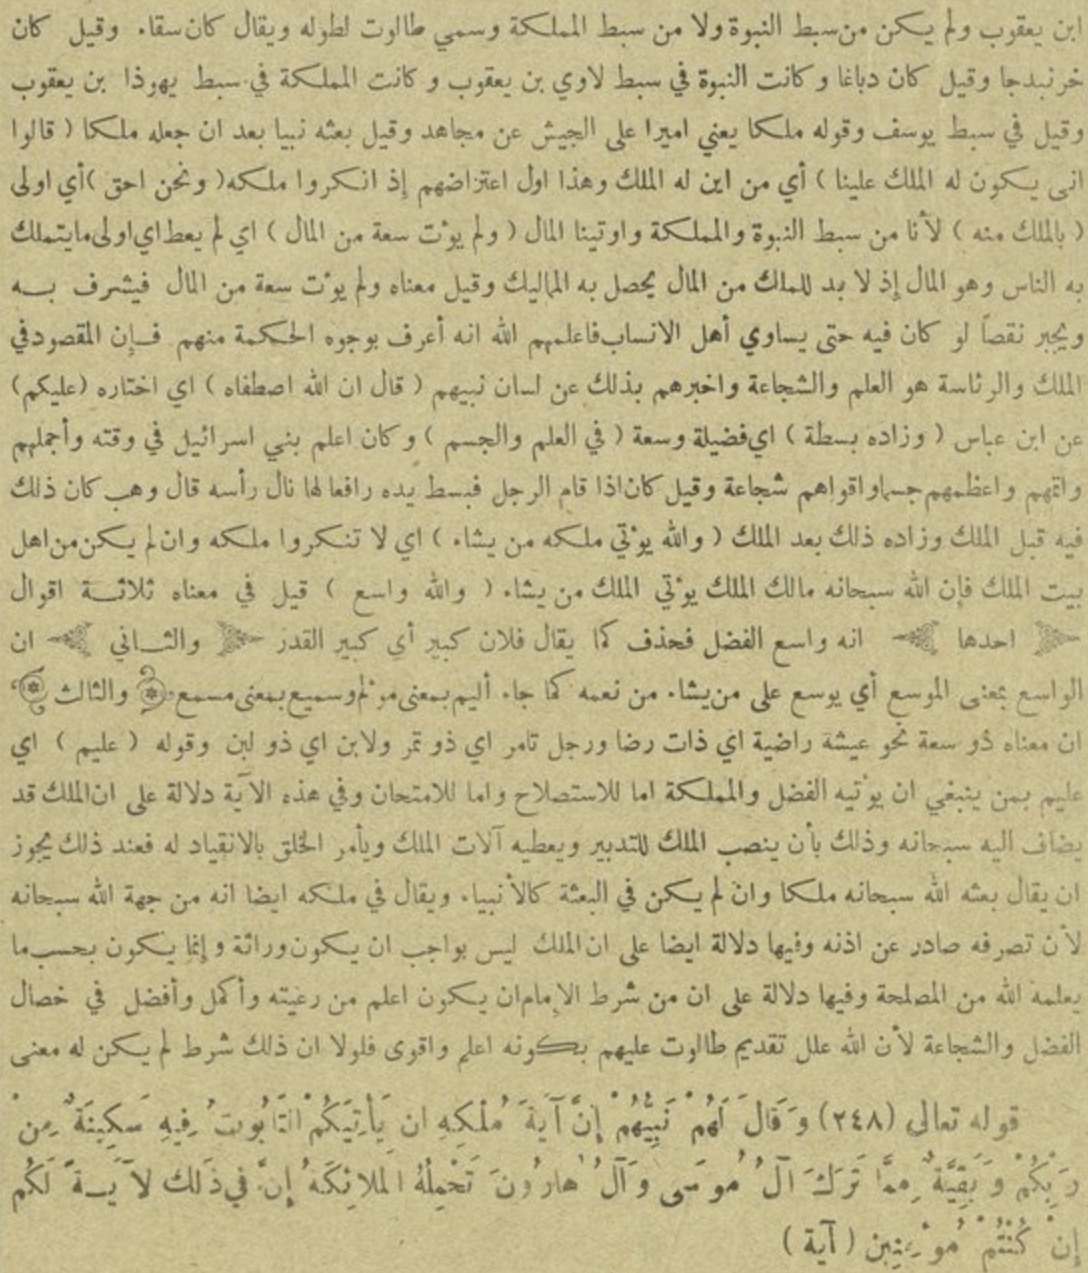 ابن يعقوب ولم يكن من سبط النبوة ولا من سبط المملكة وسمي طالوت لطوله ويقال كان سقاء وقيل كان
خربندجا وقيل كان دباغا وكانت النبوة في سبط لاوي بن يعقوب وكانت المملكة في سبط يهوذا بن يعقوب
وقيل في سبط يوسف وقوله ملكا يعني اميرا على الجيش عن مجاهد وقيل بعثه نبيا بعد ان جعله ملكا ( قالوا
انى يكون له الملك علينا ) أي من اين له الملك وهذا اول اعتراضهم إذ انكروا ملكه ( ونحن احق ) أي اولى
( بالملك منه ) لأنا من سبط النبوة والمملكة واوتينا المال ( ولم يؤت سعة من المال ) اي لم يعط اي اولى ما يتملك
به الناس وهو المال إذ لا بد للملك من المال يحصل به المماليك وقيل معناه ولم يؤت سعة من المال فيشرف به
ويجبر نقصاً لو كان فيه حتى يساوي أهل الانساب فاعلمهم الله انه أعرف بوجوه الحكمة منهم فإن المقصود في
الملك والرئاسة هو العلم والشجاعة واخبرهم بذلك عن لسان نبيهم ( قال ان الله اصطفاه ) اي اختاره (عليكم)
عن ابن عباس ( وزاده بسطة ) اي فضيلة وسعة ( في العلم والجسم ) وكان اعلم بني اسرائيل في وقته وأجملهم
واتمهم واعظمهم جسما واقواهم شجاعة وقيل كان اذا قام الرجل فبسط يده رافعا لها نال رأسه قال وهب كان ذلك
فيه قبل الملك وزاده ذلك بعد الملك ( والله يؤتي ملكه من يشاء ) اي لا تنكروا ملكه وان لم يكن من اهل
بيت الملك فإن الله سبحانه مالك الملك يؤتي الملك من يشاء ( والله واسع ) قيل في معناه ثلاثة اقوال
احدها انه واسع الفضل فحذف كما يقال فلان كبير أي كبير القدر والثاني ان
الواسع بمعنى الموسع أي يوسع على من يشاء من نعمه كما جاء أليم بمعنى مؤلم وسميع بمعنى مسمع والثالث
ان معناه ذو سعة نحو عيشة راضية اي ذات رضا ورجل تامر اي ذو تمر ولابن اي ذو لبن وقوله ( عليم ) اي
عليم بمن ينبغي ان يؤتيه الفضل والمملكة اما للاستصلاح واما للامتحان وفي هذه الآية دلالة على ان الملك قد
يضاف اليه سبحانه وذلك بأن ينصب الملك للتدبير ويعطيه آلات الملك ويأمر الخلق بالانقياد له فعند ذلك يجوز
ان يقال بعثه الله سبحانه ملكا وان لم يكن في البعثة كالأنبياء ويقال في ملكه ايضا انه من جهة الله سبحانه
لأن تصرفه صادر عن اذنه وفيها دلالة ايضا على ان الملك ليس بواجب ان يكون وراثة وإنما يكون بحسب ما
يعلمه الله من المصلحة وفيها دلالة على ان من شرط الإمام ان يكون اعلم من رعيته وأكمل وأفضل في خصال
الفضل والشجاعة لأن الله علل تقديم طالوت عليهم بكونه اعلم واقوى فلولا ان ذلك شرط لم يكن له معنى
قوله تعالى (٢٤٨) وَقَالَ لَهُمْ نَبِيُّهُمْ إِنَّ آيَةَ مُلْكِهِ ان يَأْتِيَكُمُ التَّابُوتُ فِيهِ سَكِينَةٌ مِنْ
رَبِّكُمْ وَبَقِيَّةٌ مِمَّا تَرَكَ آلُ مُوسَى وَآلُ هَارُونَ تَحْمِلُهُ المَلائِكَةُ إِنَّ فِي ذَلِكَ لآيَةً لَكُمْ
إِنْ كُنْتُمْ مُؤْمِنِينَ ( آية )